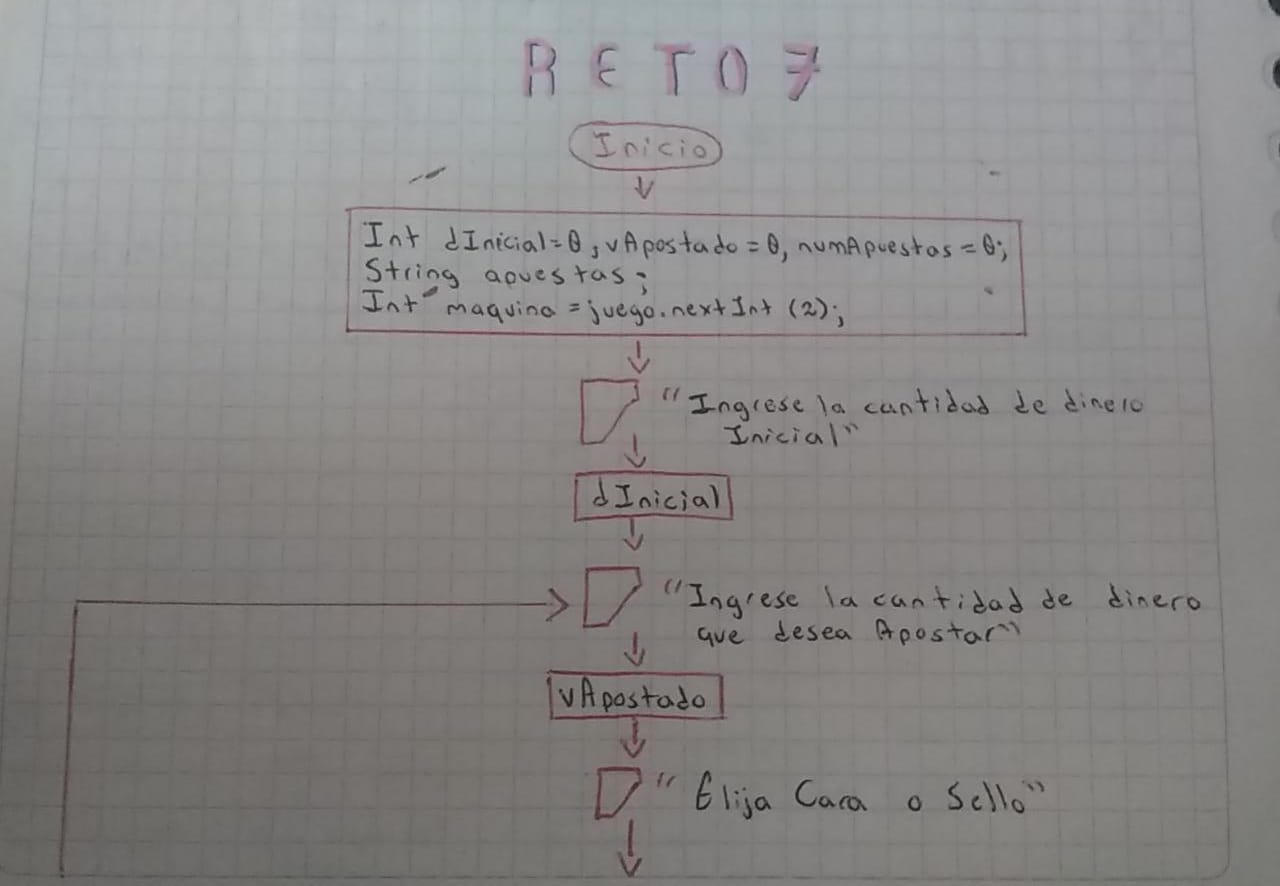 RETO 7
Inicio
Int dInicial=0, vApostado=0, numApuestas=0;
String apuestas;
Int maquina=juego.nextInt (2);
"Ingrese la cantidad de dinero
Inicial"
dInicial
"Ingrese la cantidad de dinero
que desea Apostar"
vApostado
"Elija Cara o Sello"